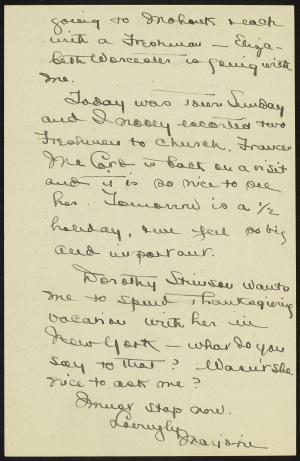 going to Mohonk & each
with a Freshman — Eliza-
beth Worcester is going with
me.
Today was town Sunday
and I nobly escorted two
Freshmen to church. Frances
Mc Card is back on a visit
and it is so nice to see
her. Tomorrow is a 1/2
holiday, we feel so big
and important.
Dorothy Stimson wants
me to spend Thanksgiving
vacation with her in
New York — what do you
say to that? Wasn't she
nice to ask me?
I must stop now.
Lovingly,
Marjorie